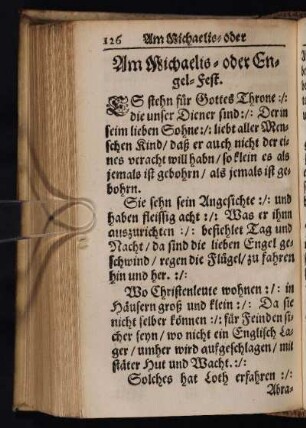 126 Am Michaelis- oder
Am Michaelis- oder En-
gel-Fest.
ES stehn für Gottes Throne :/:
die unser Diener sind :/: Der in
seim lieben Sohne :/: liebt aller Men-
schen Kind/ daß er auch nicht der ei-
nes veracht will habn/ so klein es als
jemals ist gebohrn/ als jemals ist ge-
bohrn.
Sie sehn sein Angesichte :/: und
haben fleissig acht :/: Was er ihnn
auszurichten :/: befiehlet Tag und
Nacht/ da sind die lieben Engel ge-
schwind/ regen die Flügel/ zu fahren
hin und her. :/:
Wo Christenleute wohnen :/: in
Häusern groß und klein :/: Da sie
nicht selber können :/: für Feinden si-
cher seyn/ wo nicht ein Englisch La-
ger/ umher wird aufgeschlagen/ mit
stäter Hut und Wacht. :/:
Solches hat Loth erfahren :/:
Abra-